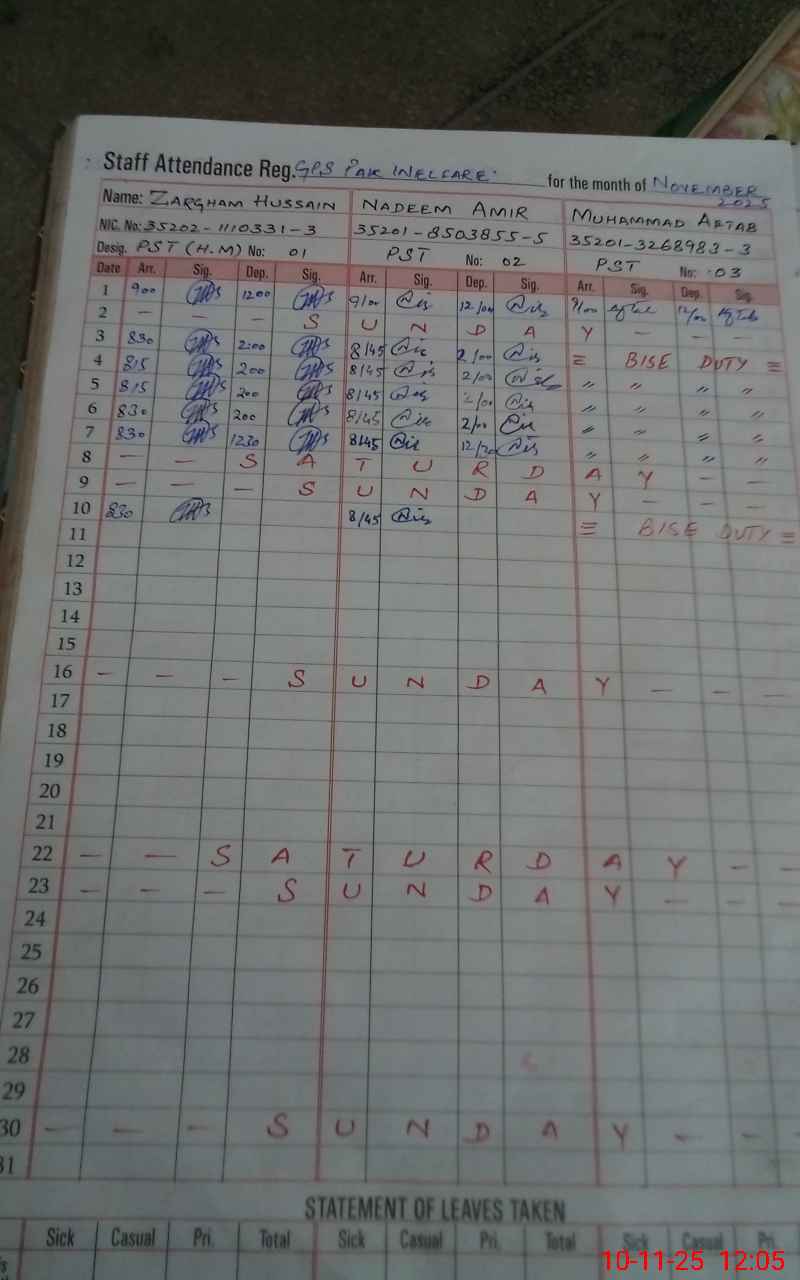 Staff Attendance Reg. GPS PAK INELFARE. for the month of NOVEMBER 2025
Name: ZARGHAM HUSSAIN NADEEM AMIR MUHAMMAD AFTAB
NIC. No: 35202-1110331-3 35201-8503855-5 35201-3268983-3
Desig. PST (H.M) No: 01 PST No: 02 PST No: 03
Date Arr. Sig. Dep. Sig. Arr. Sig. Dep. Sig. Arr. Sig. Dep. Sig.
1 900 1200 9/00 12/00 9/00 12/00
2 — — — S U N D A Y — — —
3 830 2:00 8/45 2/00 = BISE DUTY =
4 815 200 8/45 2/00 〃 〃 〃 〃
5 815 200 8/45 2/00 〃 〃 〃 〃
6 830 200 8/45 2/00 〃 〃 〃 〃
7 830 1230 8/45 12/30 〃 〃 〃 〃
8 — — S A T U R D A Y — —
9 — — — S U N D A Y — — —
10 830 8/45 = BISE DUTY =
11
12
13
14
15
16 — — — S U N D A Y — — —
17
18
19
20
21
22 — — S A T U R D A Y — —
23 — — — S U N D A Y — — —
24
25
26
27
28
29
30 — — — S U N D A Y — — —
31
STATEMENT OF LEAVES TAKEN
Sick Casual Pri. Total Sick Casual Pri. Total Sick Casual Pri.
10-11-25 12:05